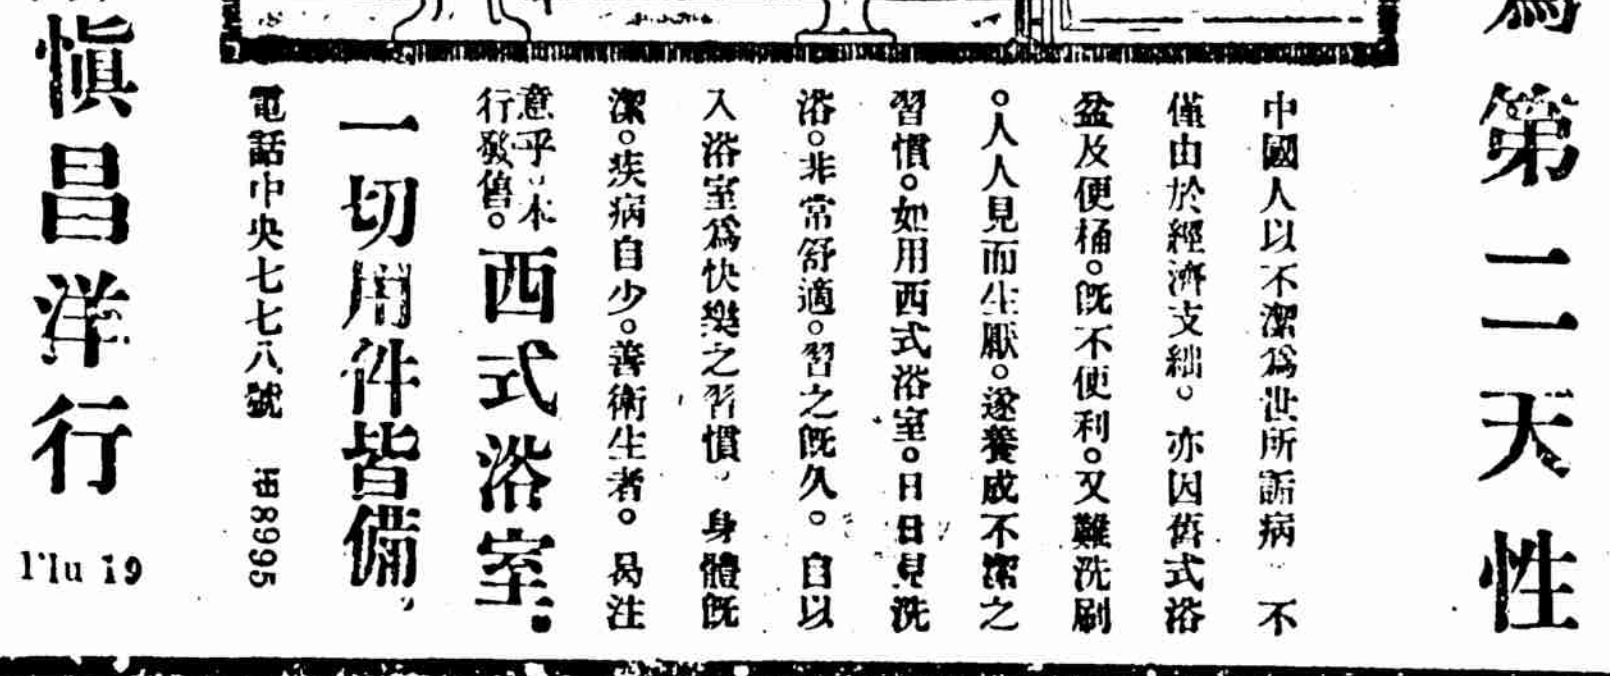 爲第二天性
中國人以不潔爲世所詬病 不
僅由於經濟支絀。亦因舊式浴
盆及便桶。旣不便利。又難洗刷
。人人見而生厭。遂養成不潔之
習慣。如用西式浴室。日日見洗
浴。非常舒適。習之旣久。自以
入浴室爲快樂之習慣。身體旣
潔。疾病自少。善衛生者。曷注
意乎 本
行發售。
西式浴室。
一切用件皆備,
電話中央七七八號 8995
愼昌洋行
Plu 19